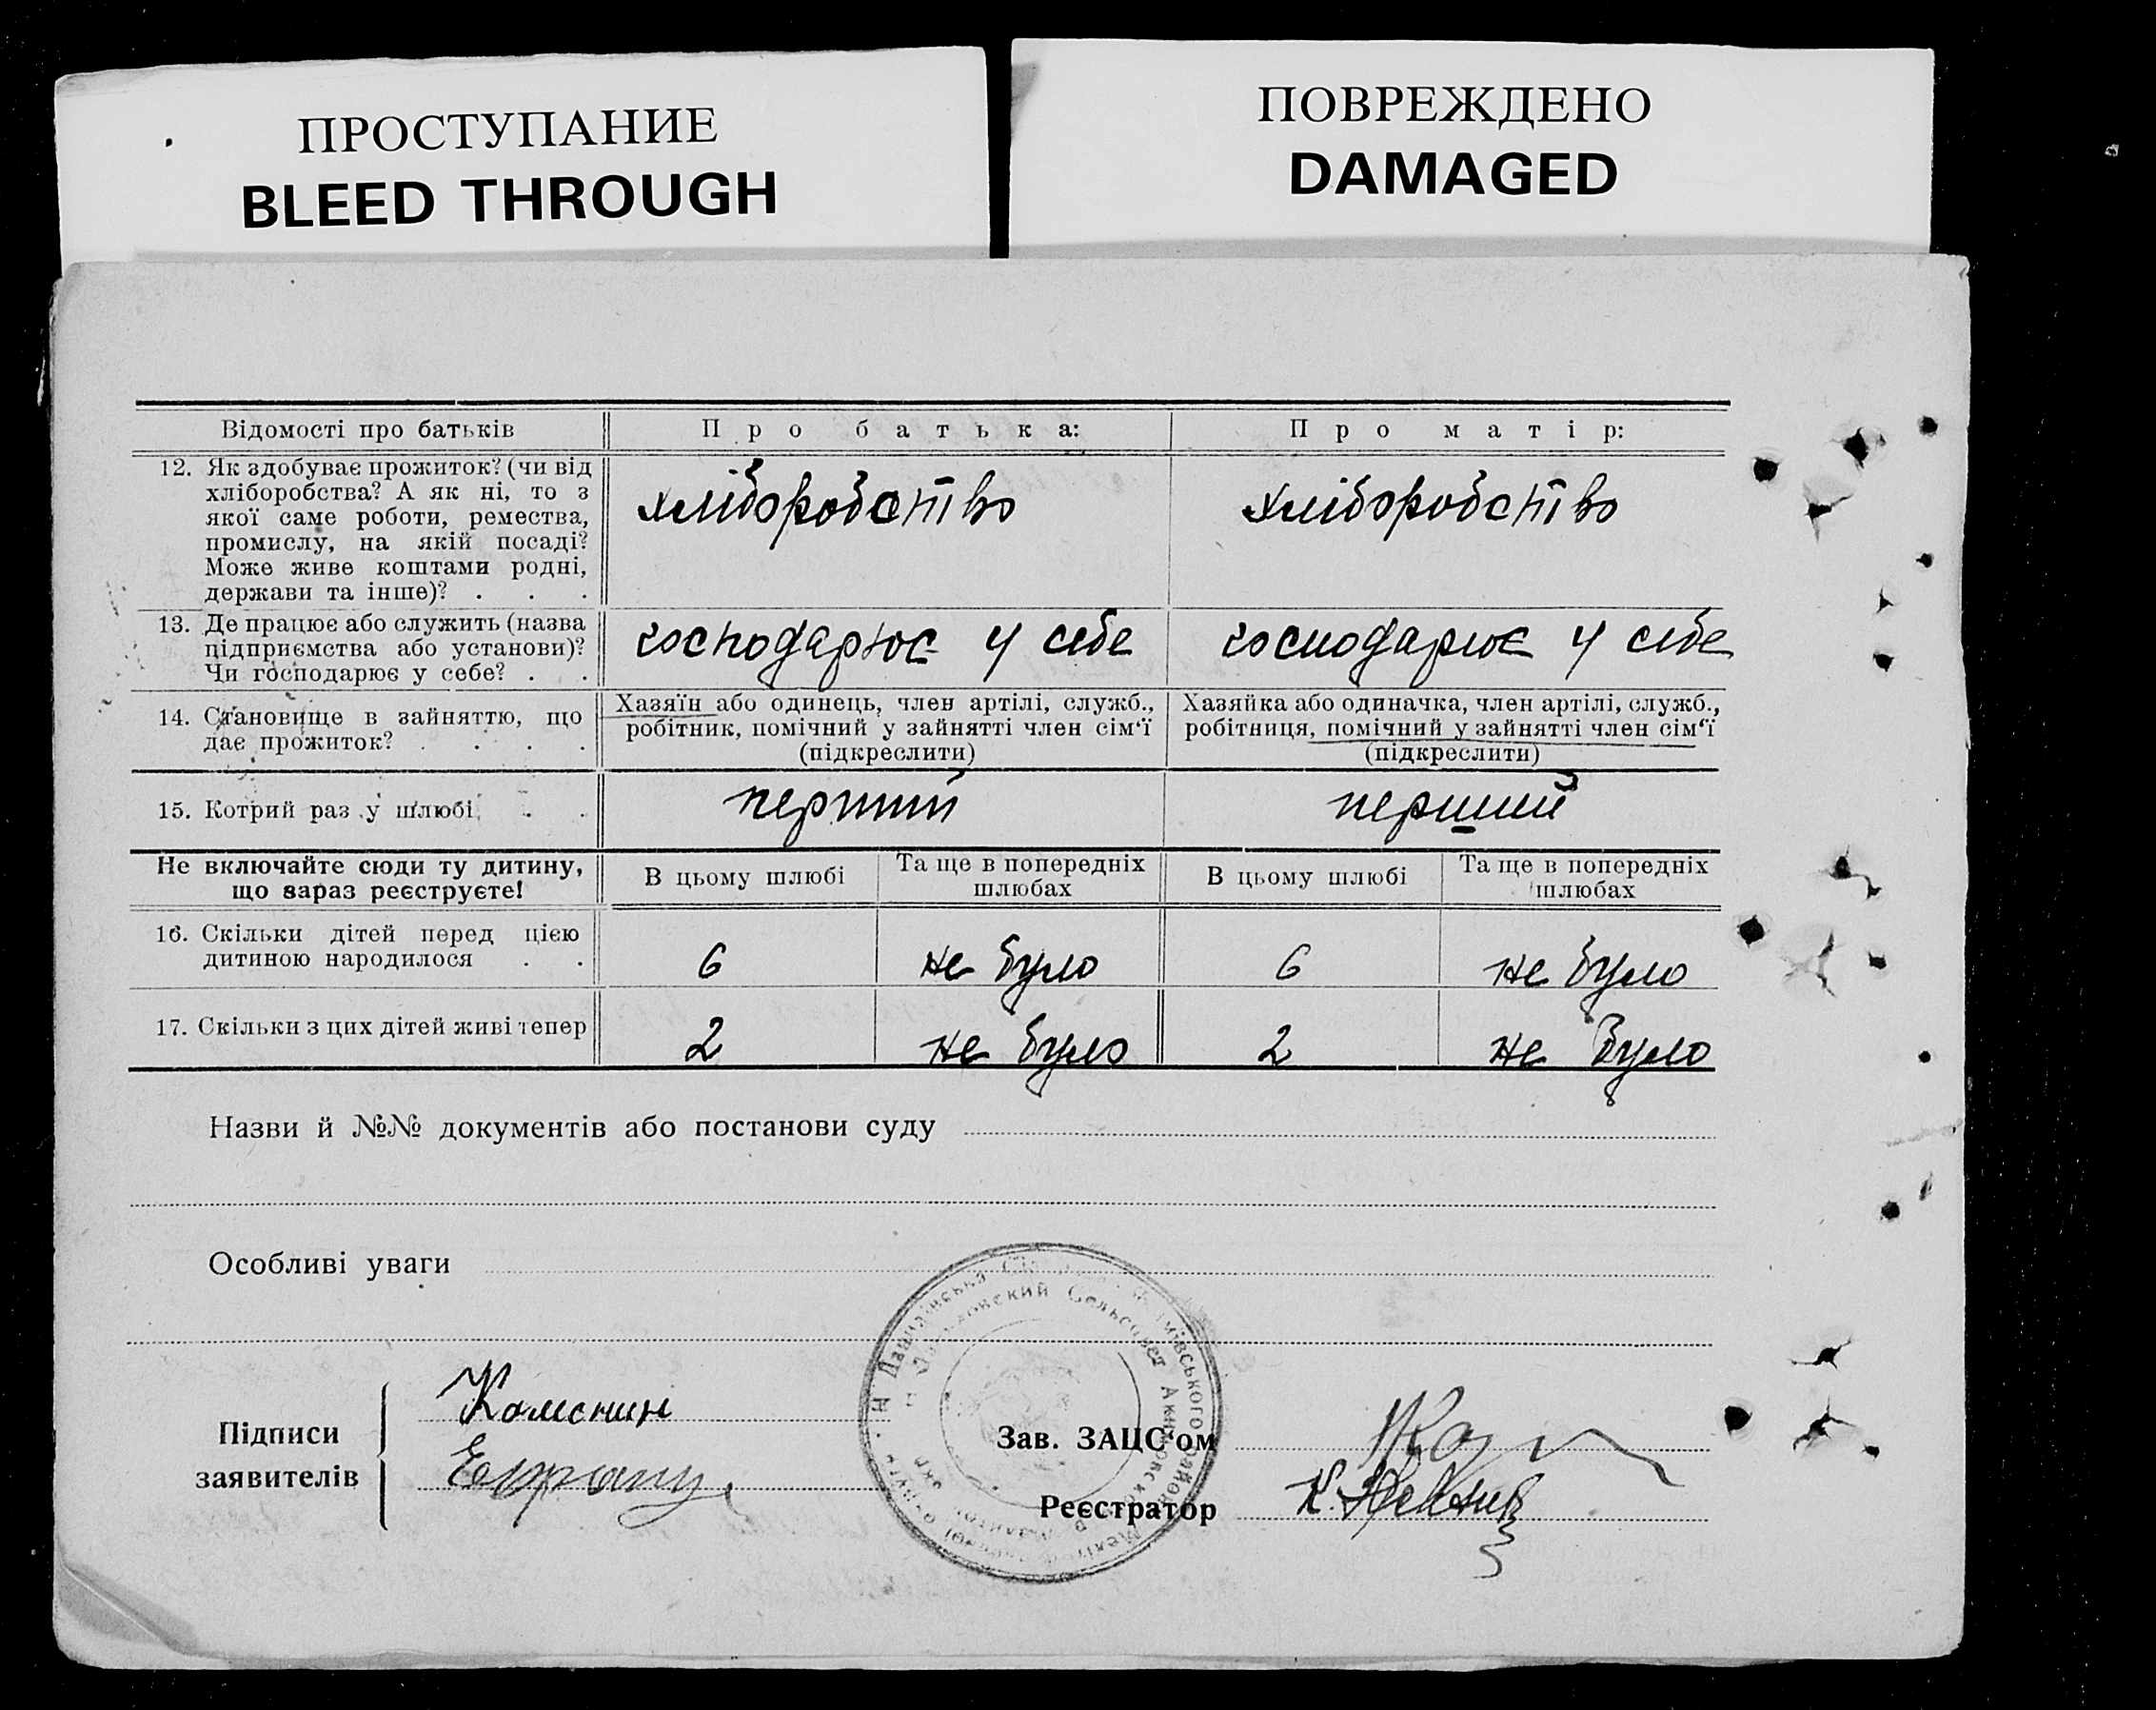 ПРОСТУПАНИЕ
BLEED THROUGH
ПОВРЕЖДЕНО
DAMAGED
Відомості про батьків
Про батька:
Про матір:
12. Як здобуває прожиток? (чи від
хліборобства? А як ні, то з
якої саме роботи, ремества,
промислу, на якій посаді?
Може живе коштами родні,
держави та інше)? . . .
хліборобство
хліборобство
13. Де працює або служить (назва
підприємства або установи)?
Чи господарює у себе? . .
господарює у себе
господарює у себе
14. Становище в зайняттю, що
дає прожиток? . . . .
Хазяїн або одинець, член артілі, служб.,
робітник, помічний у зайнятті член сім‘ї
(підкреслити)
Хазяйка або одиначка, член артілі, служб.,
робітниця, помічний у зайнятті член сім‘ї
(підкреслити)
15. Котрий раз у шлюбі . .
перший
перший
Не включайте сюди ту дитину,
що зараз реєструєте!
В цьому шлюбі
Та ще в попередніх
шлюбах
В цьому шлюбі
Та ще в попередніх
шлюбах
16. Скільки дітей перед цією
дитиною народилося . .
6
не було
6
не було
17. Скільки з цих дітей живі тепер
2
не було
2
не було
Назви й №№ документів або постанови суду
Особливі уваги
Підписи
заявителів
Зав. ЗАЦС‘ом
Реєстратор
К.
Сельсовет